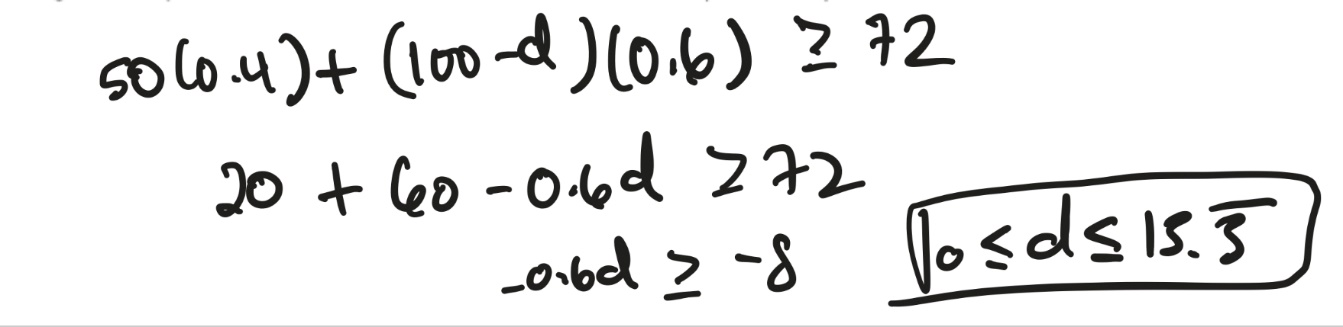 50(0.4)+(100-d)(0.6) ≥ 72
20 + 60 - 0.6d ≥ 72
-0.6d ≥ -8
0 ≤ d ≤ 15.3̅